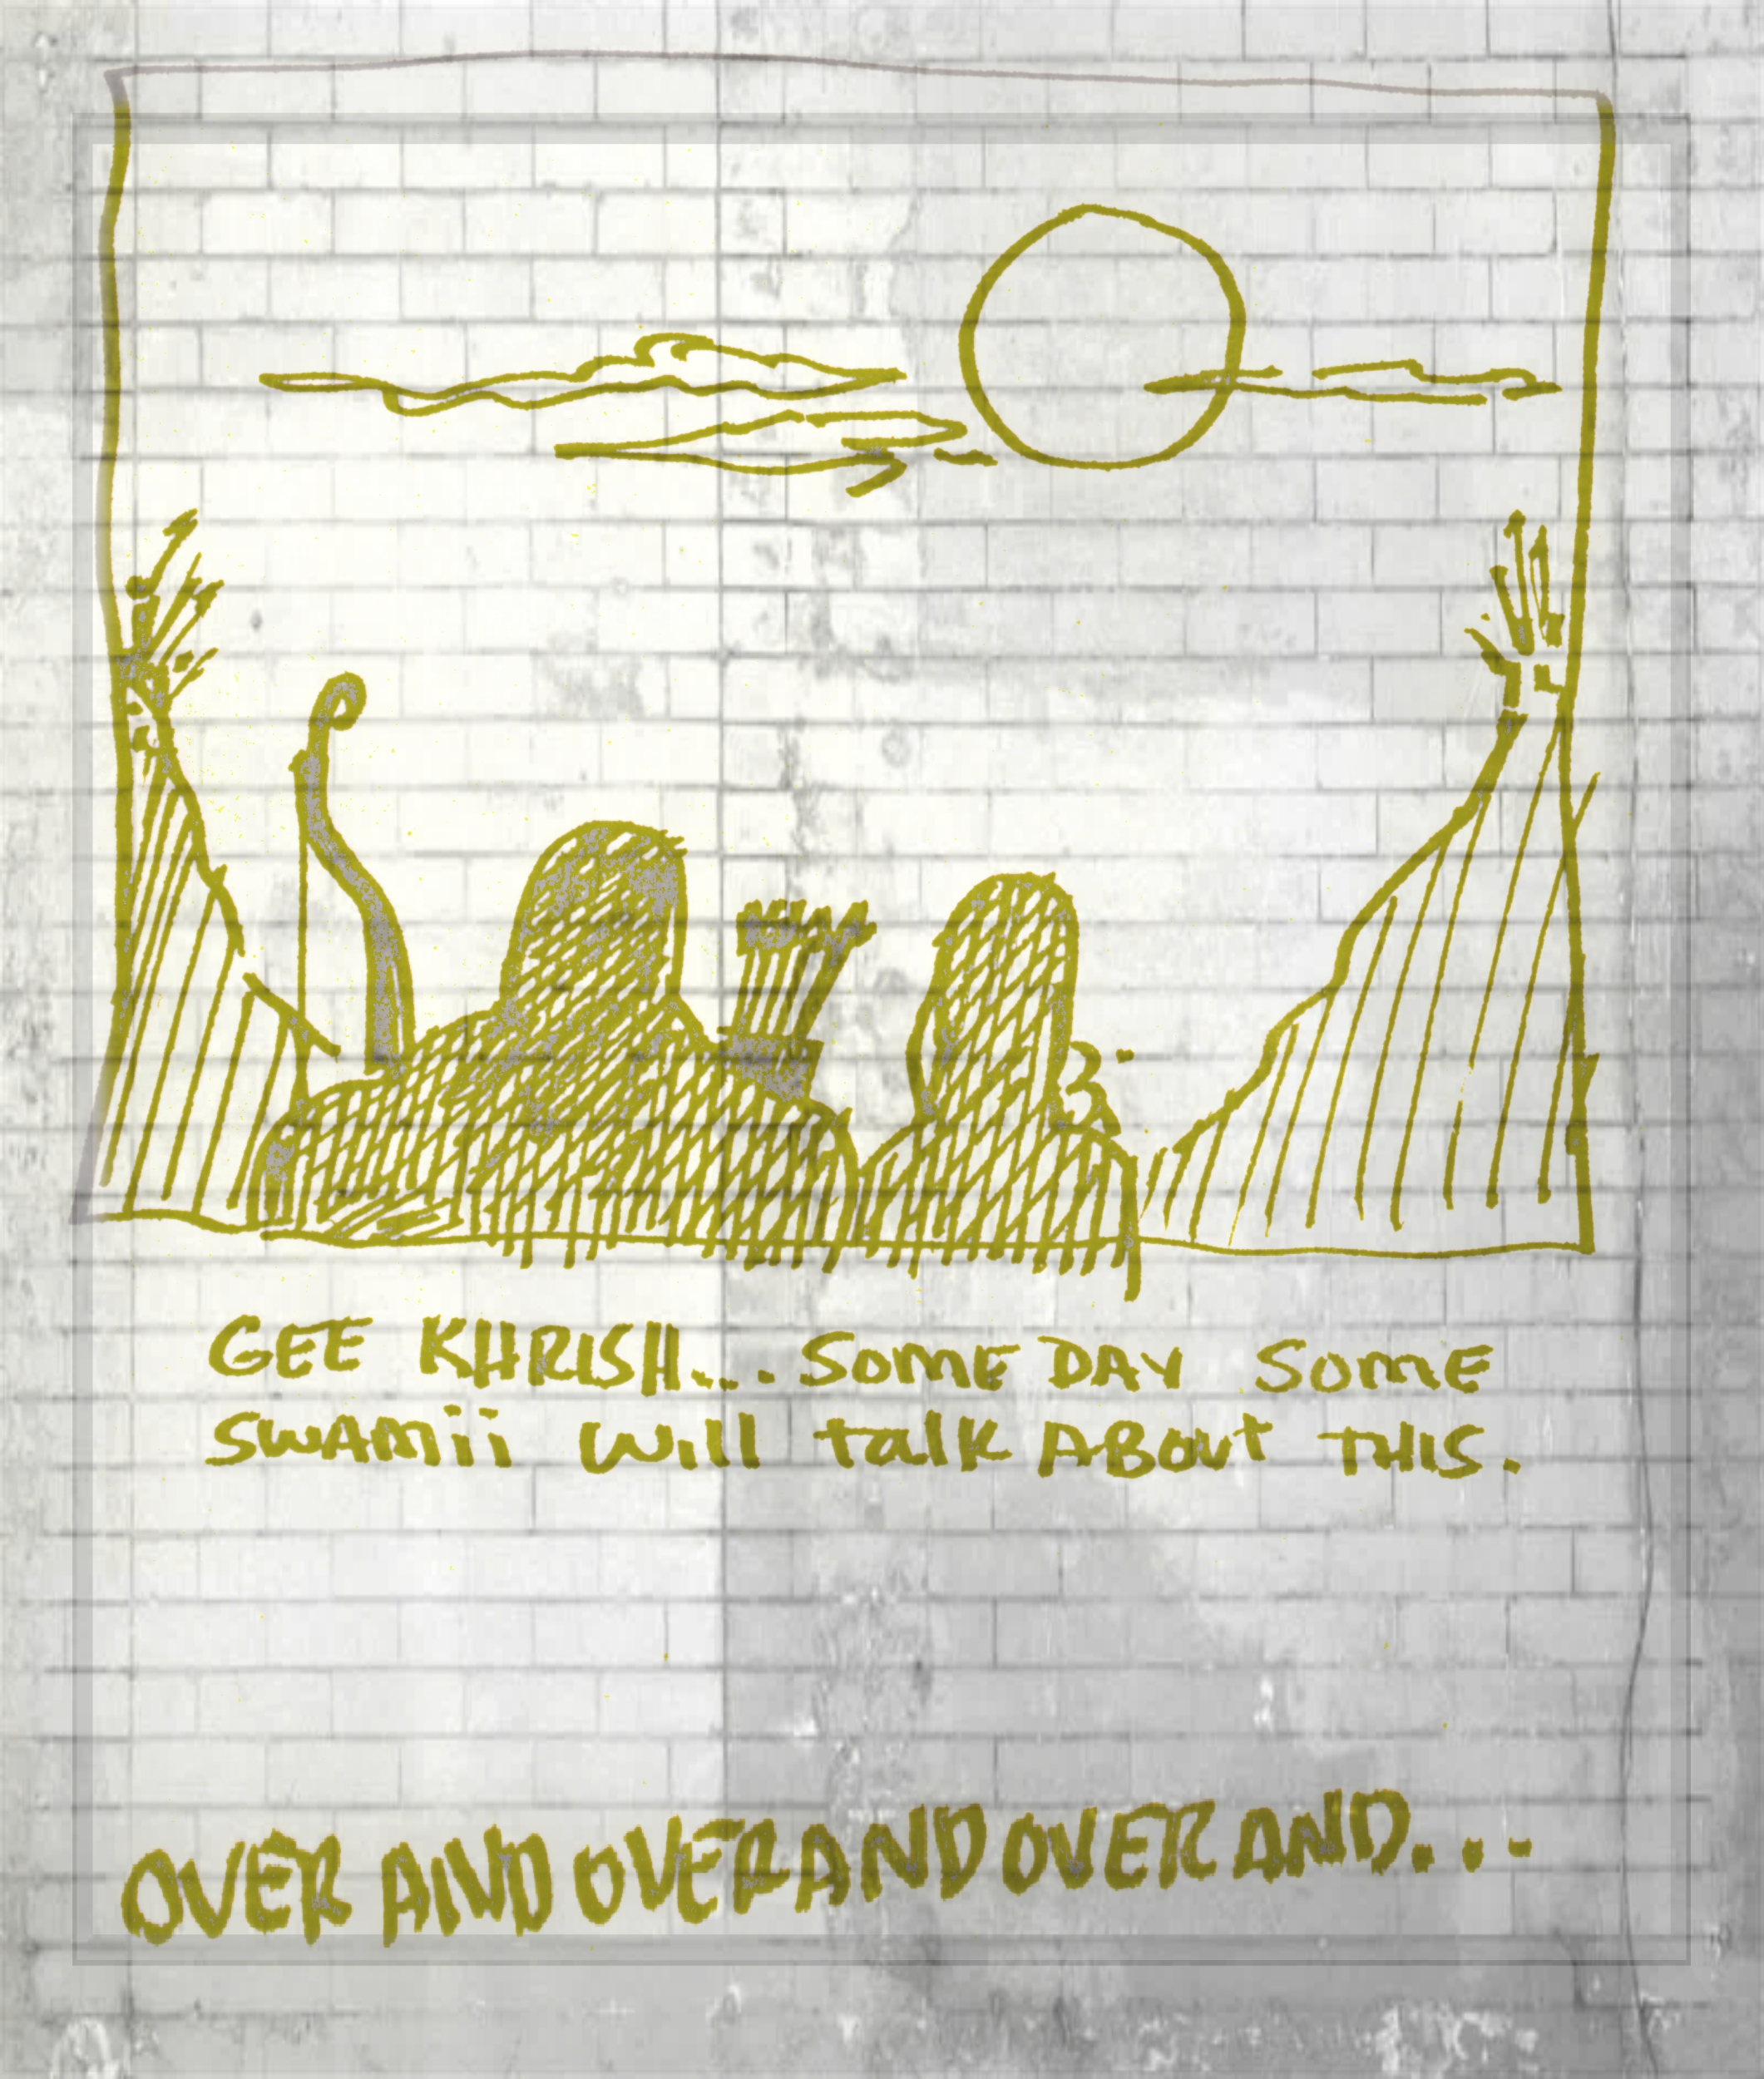 GEE KHRISH... SOME DAY SOME
SWAMii Will talk ABOUT THIS.
OVER AND OVER AND OVER AND...